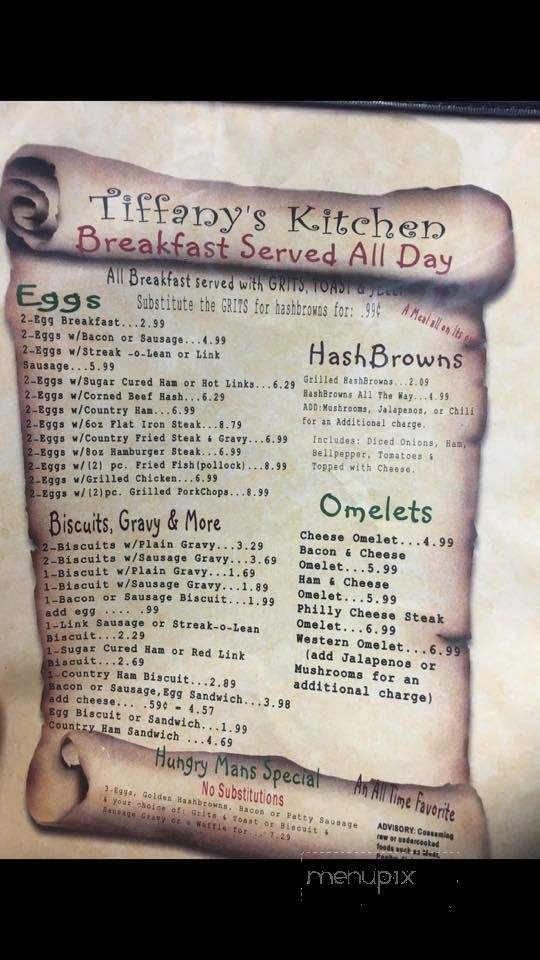 Tiffany's Kitchen
Breakfast Served All Day
All Breakfast served with GRITS, TOAST & JELLY
Substitute the GRITS for hashbrowns for: .99¢
A Meal all on its
Eggs
2-Egg Breakfast...2.99
2-Eggs w/Bacon or Sausage...4.99
2-Eggs w/Streak -o-Lean or Link
Sausage...5.99
2-Eggs w/Sugar Cured Ham or Hot Links...6.29
2-Eggs w/Corned Beef Hash...6.29
2-Eggs w/Country Ham...6.99
2-Eggs w/6oz Flat Iron Steak...8.79
2-Eggs w/Country Fried Steak & Gravy...6.99
2-Eggs w/8oz Hamburger Steak...6.99
2-Eggs w/(2) pc. Fried Fish(pollock)...8.99
2-Eggs w/Grilled Chicken...6.99
2-Eggs w/(2)pc. Grilled PorkChops...8.99
HashBrowns
Grilled HashBrowns...2.09
HashBrowns All The Way...4.99
ADD:Mushrooms, Jalapenos, or Chili
for an Additional charge.
Includes: Diced Onions, Ham,
Bellpepper, Tomatoes &
Topped with Cheese.
Biscuits, Gravy & More
2-Biscuits w/Plain Gravy...3.29
2-Biscuits w/Sausage Gravy...3.69
1-Biscuit w/Plain Gravy...1.69
1-Biscuit w/Sausage Gravy...1.89
1-Bacon or Sausage Biscuit...1.99
add egg .... .99
1-Link Sausage or Streak-o-Lean
Biscuit...2.29
1-Sugar Cured Ham or Red Link
Biscuit...2.69
1-Country Ham Biscuit...2.89
Bacon or Sausage,Egg Sandwich...3.98
add cheese... .59¢ = 4.57
Egg Biscuit or Sandwich...1.99
Country Ham Sandwich ...4.69
Omelets
Cheese Omelet...4.99
Bacon & Cheese
Omelet...5.99
Ham & Cheese
Omelet...5.99
Philly Cheese Steak
Omelet...6.99
Western Omelet...6.99
(add Jalapenos or
Mushrooms for an
additional charge)
Hungry Mans Special
No Substitutions
3-Eggs, Golden Hashbrowns, Bacon or Patty Sausage
& your choice of: Grits & Toast or Biscuit &
Sausage Gravy or a Waffle for... 7.29
An All Time Favorite
ADVISORY: Consuming
raw or undercooked
foods such as Meat,
menupix